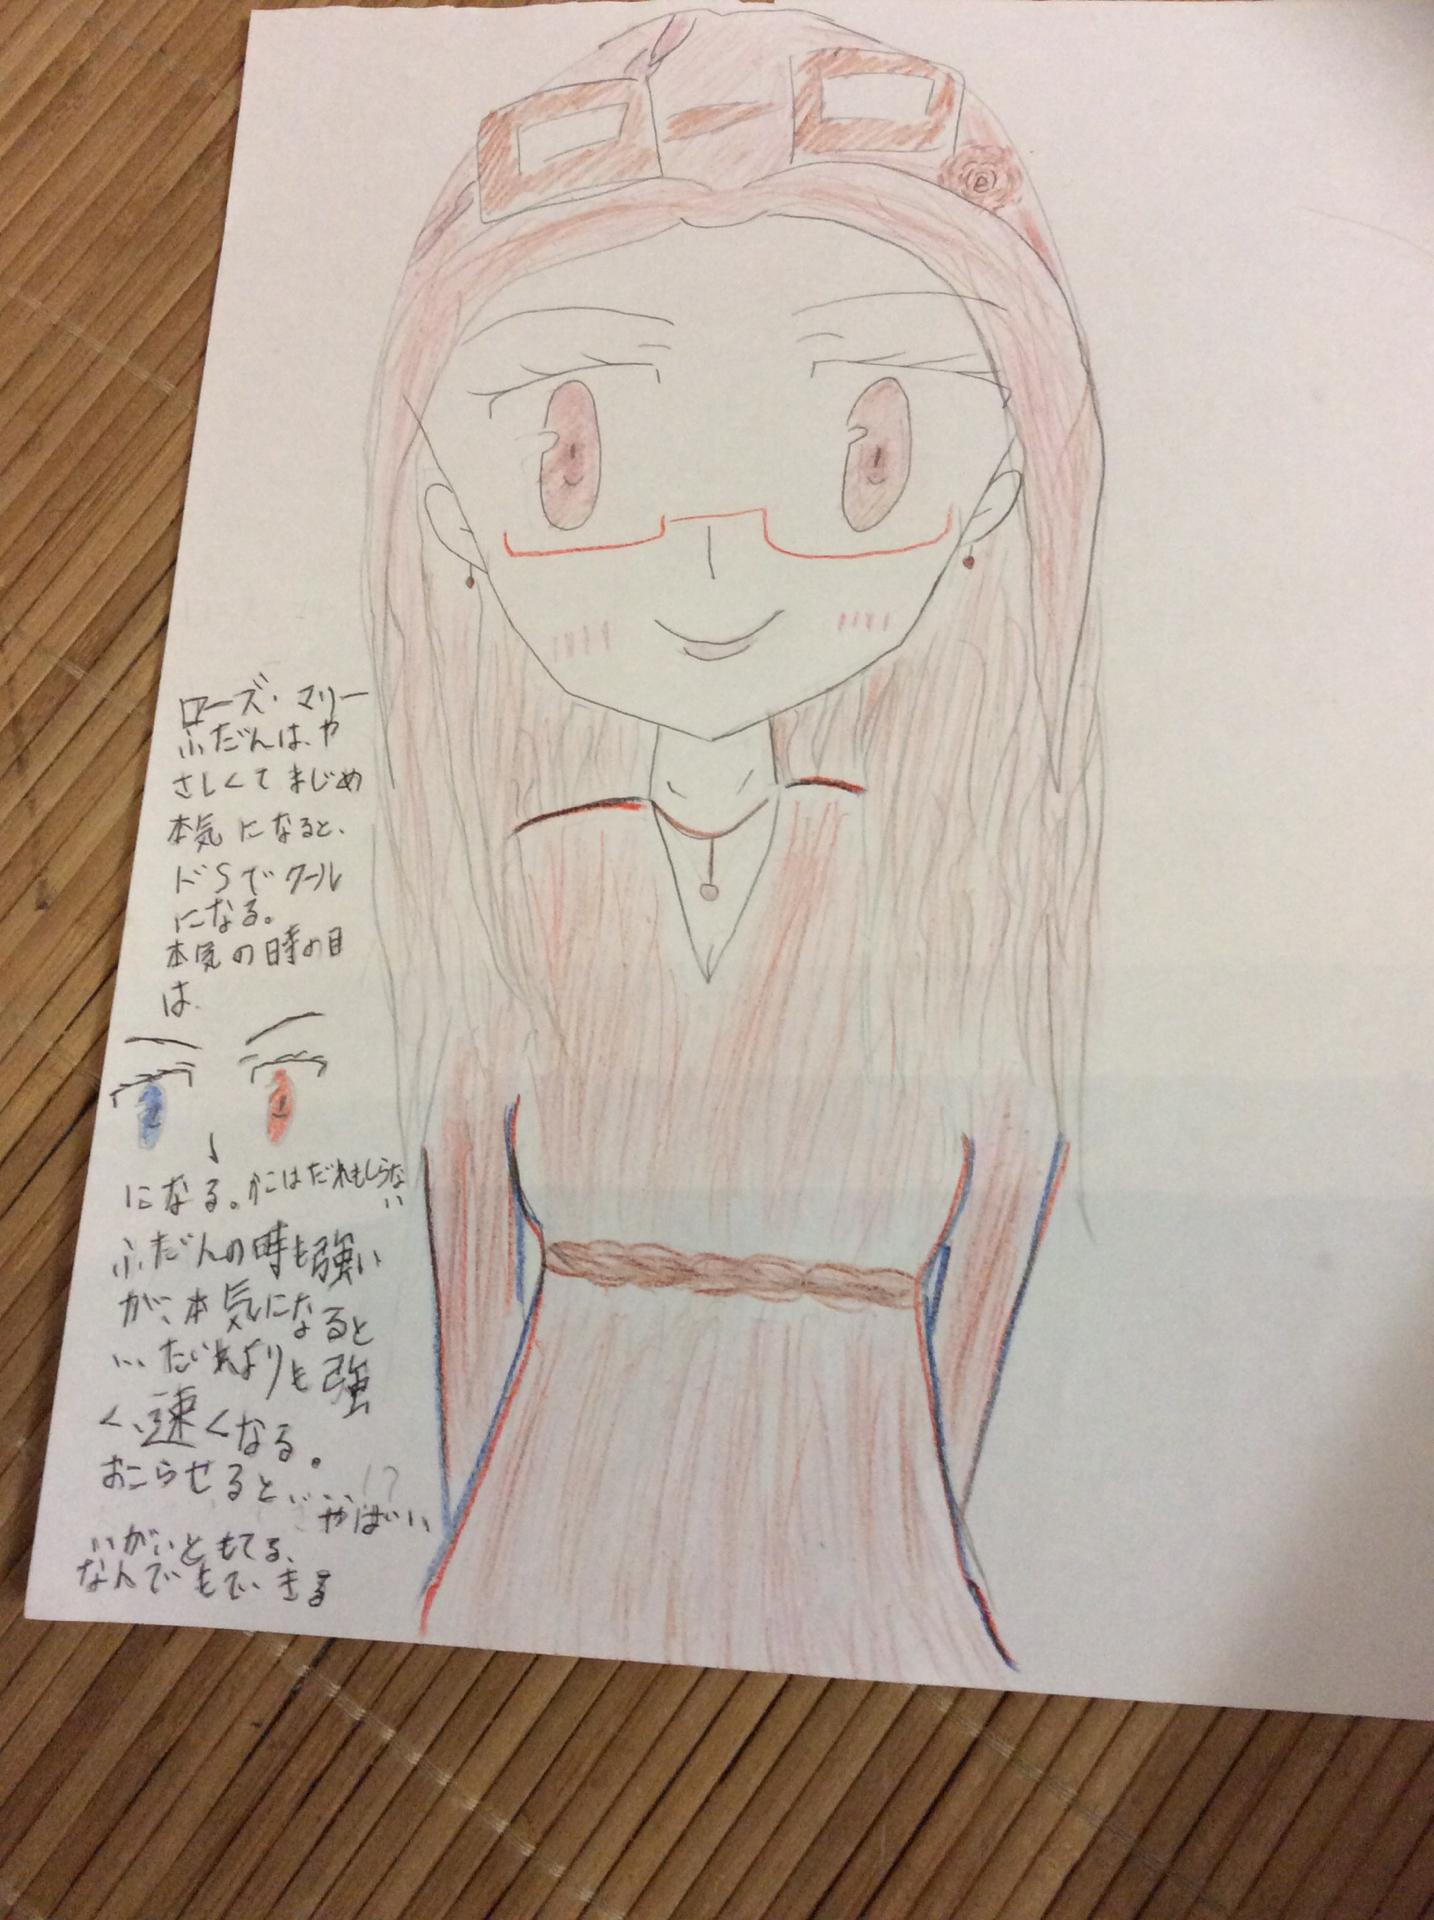 ローズ・マリー
ふだんは、や
さしくてまじめ
本気になると、
ドSでクール
になる。
本気の時の目
は、
になる。かこはだれもしらな
い
ふだんの時も強い
が、本気になると
…だれよりも強
く、速くなる。
おこらせると…!?
やばいい
いがいともてる、
なんでもできる